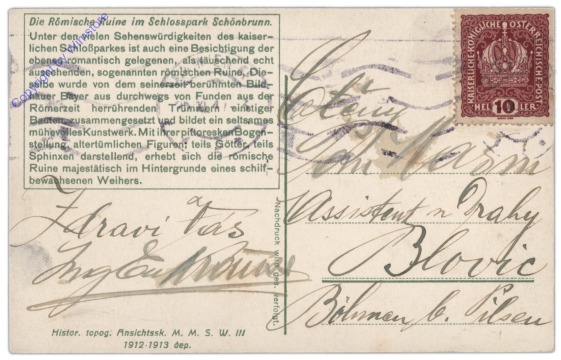 Die Römische Ruine im Schlosspark Schönbrunn.
Unter den vielen Sehenswürdigkeiten des kaiser-
lichen Schloßparkes ist auch eine Besichtigung der
ebenso romantisch gelegenen, als täuschend echt
aussehenden, sogenannten römischen Ruine. Die-
selbe wurde von dem seinerzeit berühmten Bild-
hauer Beyer aus durchwegs von Funden aus der
Römerzeit herrührenden Trümmern einstiger
Bauten zusammengesetzt und bildet ein seltsames
mühevolles Kunstwerk. Mit ihrer pittoresken Bogen-
stellung, altertümlichen Figuren; teils Götter, teils
Sphinxen darstellend, erhebt sich die römische
Ruine majestätisch im Hintergrunde eines schilf-
bewachsenen Weihers.
Zdraví Vás
Histor. topog. Ansichtssk. M. M. S. W. III
1912-1913 dep.
Nachdruck wird ges. verfolgt.
KAISERLICHE KÖNIGLICHE ÖSTERREICHISCHE POST
HEL 10 LER
Assistent
Blovic
Böhmen b. Pilsen